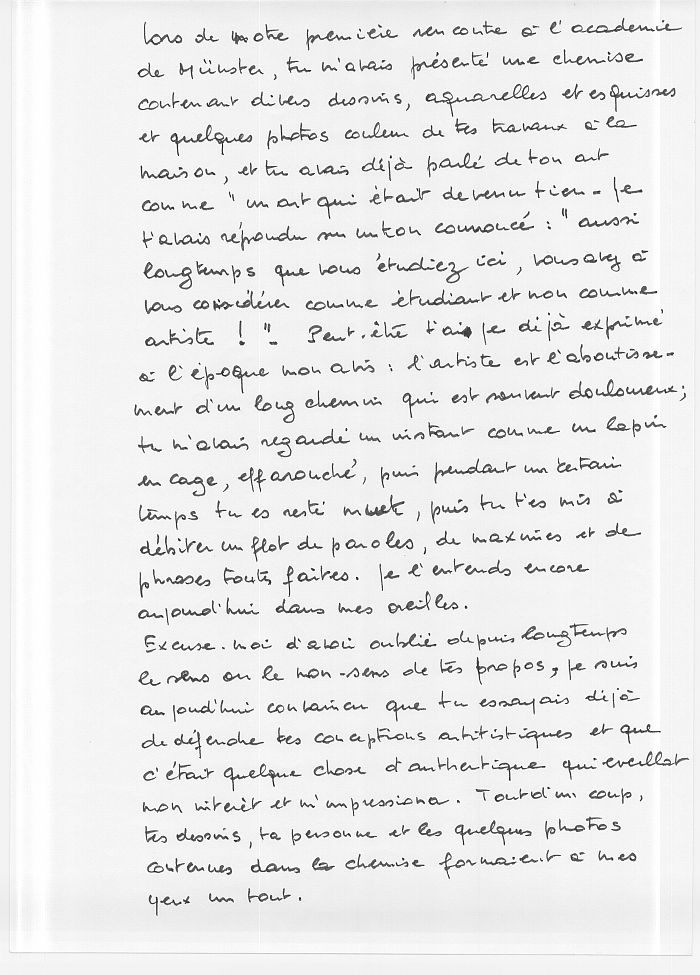 Lors de notre première rencontre à l'academie
de Münster, tu m'avais présenté une chemise
contenant divers dessins, aquarelles et esquisses
et quelques photos couleur de tes travaux à la
maison, et tu avais déjà parlé de ton art
comme " un art qui était devenu tien - Je
t'avais répondu sur un ton courroucé : " aussi
longtemps que vous étudiez ici, vous avez à
vous considérer comme étudiant et non comme
artiste ! ". Peut-être t'ai je déjà exprimé
à l'époque mon avis : l'artiste est l'aboutisse-
ment d'un long chemin qui est souvent douloureux ;
tu m'avais regardé un instant comme un lapin
en cage, effarouché, puis pendant un certain
temps tu es resté muet, puis tu t'es mis à
débiter un flot de paroles, de maximes et de
phrases toutes faites. Je l'entends encore
aujourd'hui dans mes oreilles.
Excuse-moi d'avoir oublié depuis longtemps
le sens ou le non-sens de tes propos, je suis
aujourd'hui convaincu que tu essayais déjà
de défendre tes conceptions artitistiques et que
c'était quelque chose d'authentique qui eveillat
mon interêt et m'impressiona. Tout d'un coup,
tes dessins, ta personne et les quelques photos
contenues dans la chemise formaient à mes
yeux un tout.